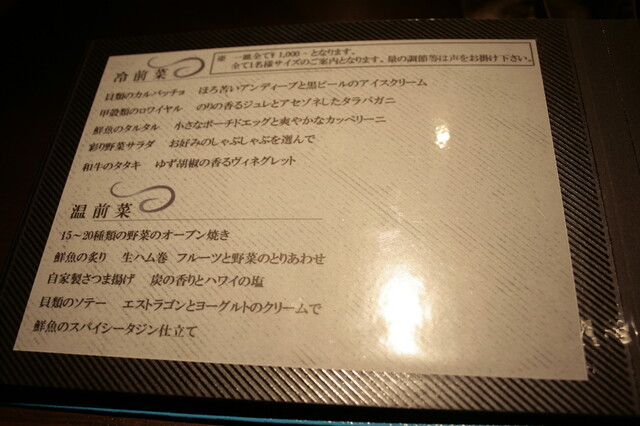 ※ 一皿全て¥1,000-となります。
全て1名様サイズのご案内となります、量の調節等は声をお掛け下さい。
冷前菜
貝類のカルパッチョ ほろ苦いアンディーブと黒ビールのアイスクリーム
甲殻類のロワイヤル のりの香るジュレとアセゾネしたタラバガニ
鮮魚のタルタル 小さなポーチドエッグと爽やかなカッペリーニ
彩り野菜サラダ お好みのしゃぶしゃぶを選んで
和牛のタタキ ゆず胡椒の香るヴィネグレット
温前菜
15～20種類の野菜のオーブン焼き
鮮魚の炙り 生ハム巻 フルーツと野菜のとりあわせ
自家製さつま揚げ 炭の香りとハワイの塩
貝類のソテー エストラゴンとヨーグルトのクリームで
鮮魚のスパイシータジン仕立て